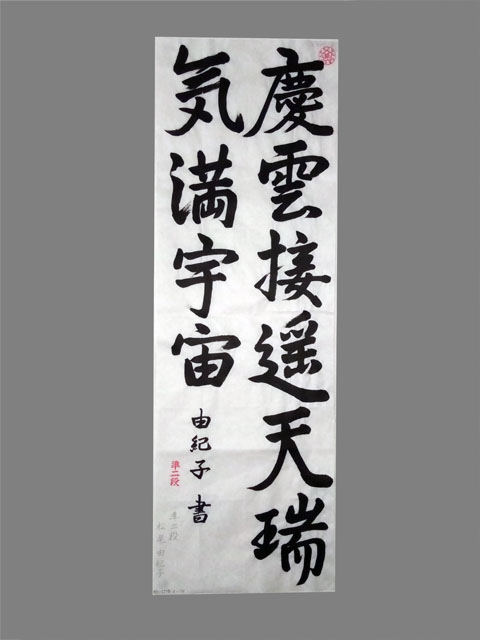 慶雲接遥天瑞
気満宇宙
由紀子 書
準二段
準二段
松尾 由紀子